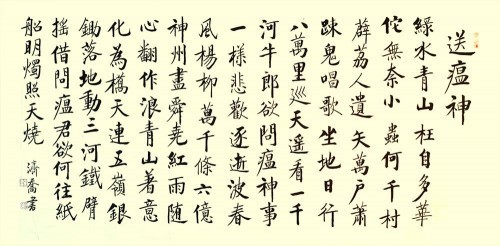 送瘟神
綠水青山枉自多華
佗無奈小蟲何千村
薜荔人遺矢萬戶蕭
踈鬼唱歌坐地日行
八萬里巡天遥看一千
河牛郎欲問瘟神事
一樣悲歡逐逝波春
風楊柳萬千條六億
神州盡舜堯紅雨随
心翻作浪青山著意
化為橋天連五嶺銀
鋤落地動三河鐵臂
摇借問瘟君欲何往紙
船明燭照天燒
濟喬書